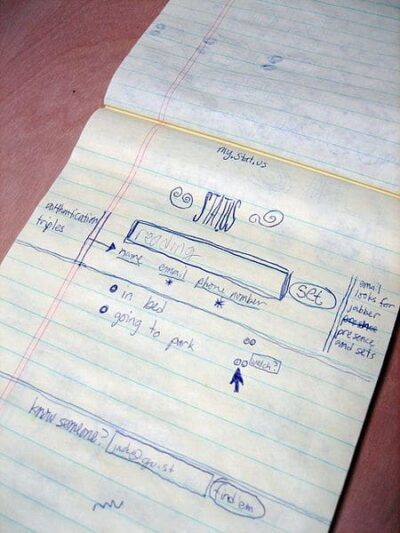 my.stat.us
STATUS
reading
set
authentication
triples
name email phone number
email
looks for
jabber
presence
presence
and sets
in bed
going to park
watch?
know someone?
find em